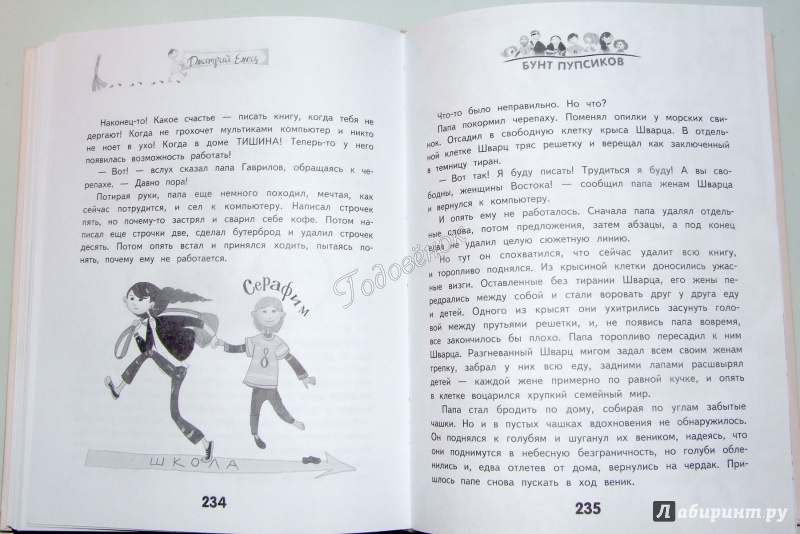 Дмитрий Емец
Наконец-то! Какое счастье — писать книгу, когда тебя не
дергают! Когда не грохочет мультиками компьютер и никто
не ноет в ухо! Когда в доме ТИШИНА! Теперь-то у него
появилась возможность работать!
— Вот! — вслух сказал папа Гаврилов, обращаясь к че-
репахе. — Давно пора!
Потирая руки, папа еще немного походил, мечтая, как
сейчас потрудится, и сел к компьютеру. Написал строчек
пять, но почему-то застрял и сварил себе кофе. Потом на-
писал еще строчки две, сделал бутерброд и удалил строчек
десять. Потом опять встал и принялся ходить, пытаясь по-
нять, почему ему не работается.
Серафим
8
ШКОЛА
234
БУНТ ПУПСИКОВ
Что-то было неправильно. Но что?
Папа покормил черепаху. Поменял опилки у морских сви-
нок. Отсадил в свободную клетку крыса Шварца. В отдель-
ной клетке Шварц тряс решетку и верещал как заключенный
в темницу тиран.
— Вот так! Я буду писать! Трудиться я буду! А вы сво-
бодны, женщины Востока! — сообщил папа женам Шварца
и вернулся к компьютеру.
И опять ему не работалось. Сначала папа удалял отдель-
ные слова, потом предложения, затем абзацы, а под конец
едва не удалил целую сюжетную линию.
Но тут он спохватился, что сейчас удалит всю книгу,
и торопливо поднялся. Из крысиной клетки доносились ужас-
ные визги. Оставленные без тирании Шварца, его жены пе-
редрались между собой и стали воровать друг у друга еду
и детей. Одного из крысят они ухитрились засунуть голо-
вой между прутьями решетки, и, не появись папа вовремя,
все закончилось бы плохо. Папа торопливо пересадил к ним
Шварца. Разгневанный Шварц мигом задал всем своим женам
трепку, забрал у них всю еду, задними лапами расшвырял
детей — каждой жене примерно по равной кучке, и опять
в клетке воцарился хрупкий семейный мир.
Папа стал бродить по дому, собирая по углам забытые
чашки. Но и в пустых чашках вдохновения не обнаружилось.
Он поднялся к голубям и шуганул их веником, надеясь, что
они поднимутся в небесную безграничность, но голуби обле-
нились и, едва отлетев от дома, вернулись на чердак. При-
шлось папе снова пускать в ход веник.
235
Годовёнок
Лабиринт.ру